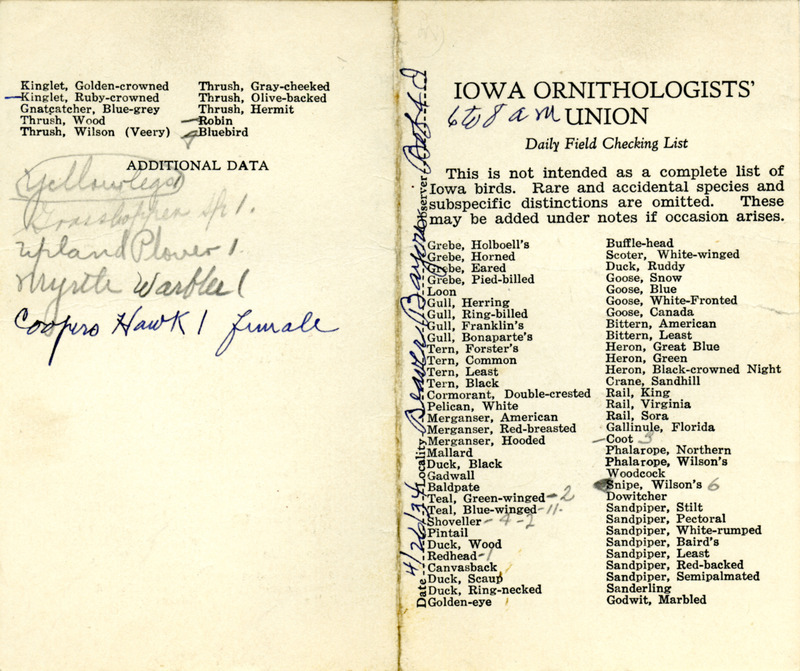 Kinglet, Golden-crowned
Kinglet, Ruby-crowned
Gnatcatcher, Blue-grey
Thrush, Wood
Thrush, Wilson (Veery)
Thrush, Gray-cheeked
Thrush, Olive-backed
Thrush, Hermit
Robin
Bluebird
ADDITIONAL DATA
Yellowlegs
Grasshopper Sp 1.
Upland Plover 1
Myrtle Warbler 1
Coopers Hawk 1 female
Date 4/26/34 Locality Beaver Observer
IOWA ORNITHOLOGISTS'
6 to 8 am UNION
Daily Field Checking List
This is not intended as a complete list of
Iowa birds. Rare and accidental species and
subspecific distinctions are omitted. These
may be added under notes if occasion arises.
Grebe, Holboell's
Grebe, Horned
Grebe, Eared
Grebe, Pied-billed
Loon
Gull, Herring
Gull, Ring-billed
Gull, Franklin's
Gull, Bonaparte's
Tern, Forster's
Tern, Common
Tern, Least
Tern, Black
Cormorant, Double-crested
Pelican, White
Merganser, American
Merganser, Red-breasted
Merganser, Hooded
Mallard
Duck, Black
Gadwall
Baldpate
Teal, Green-winged - 2
Teal, Blue-winged - 11.
Shoveller - 4 - 2
Pintail
Duck, Wood
Redhead - 1
Canvasback
Duck, Scaup
Duck, Ring-necked
Golden-eye
Buffle-head
Scoter, White-winged
Duck, Ruddy
Goose, Snow
Goose, Blue
Goose, White-Fronted
Goose, Canada
Bittern, American
Bittern, Least
Heron, Great Blue
Heron, Green
Heron, Black-crowned Night
Crane, Sandhill
Rail, King
Rail, Virginia
Rail, Sora
Gallinule, Florida
Coot 3
Phalarope, Northern
Phalarope, Wilson's
Woodcock
Snipe, Wilson's 6
Dowitcher
Sandpiper, Stilt
Sandpiper, Pectoral
Sandpiper, White-rumped
Sandpiper, Baird's
Sandpiper, Least
Sandpiper, Red-backed
Sandpiper, Semipalmated
Sanderling
Godwit, Marbled